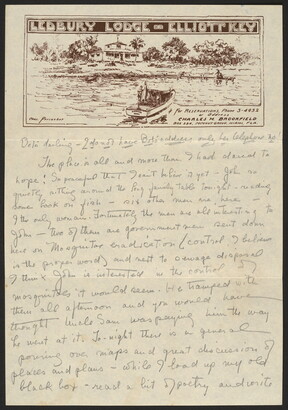 LEDBURY LODGE - ELLIOTT KEY
For Reservations, Phone 3-4032
or Address
CHARLES M. BROOKFIELD
Dots darling - I do not have Bets address only her telephone no
The place is all and more than I had dared to
hope; So peaceful that I can't believe it yet. John so
quietly sitting around the big family table tonight - reading
some book on fish - six other men are here -
I the only woman. Fortunately the men are all interesting to
John - two of them are government men sent down
here on Mosquitoe eradication (control I believe
is the proper word) and next to sewage disposal
I think John is interested in the control of
mosquitoes it would seem. He tramped with
them all afternoon and you would have
thought Uncle Sam was paying him the way
he went at it. To-night there is a general
pouring over maps and great discussion of
places and plans - while I load up my old
black box - read a bit of poetry and write